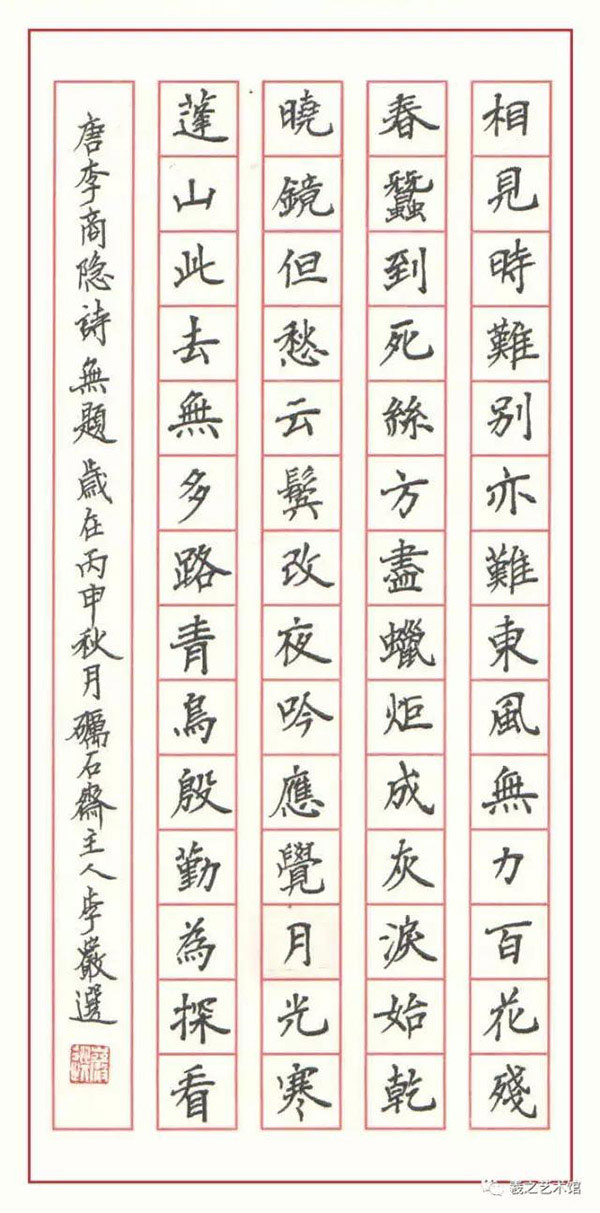 相見時難別亦難東風無力百花殘
春蠶到死絲方盡蠟炬成灰淚始乾
曉鏡但愁云鬓改夜吟應覺月光寒
蓬山此去無多路青鳥殷勤為探看
唐李商隐詩無題歲在丙申秋月礪石齋主人李嚴選
羲之艺术馆